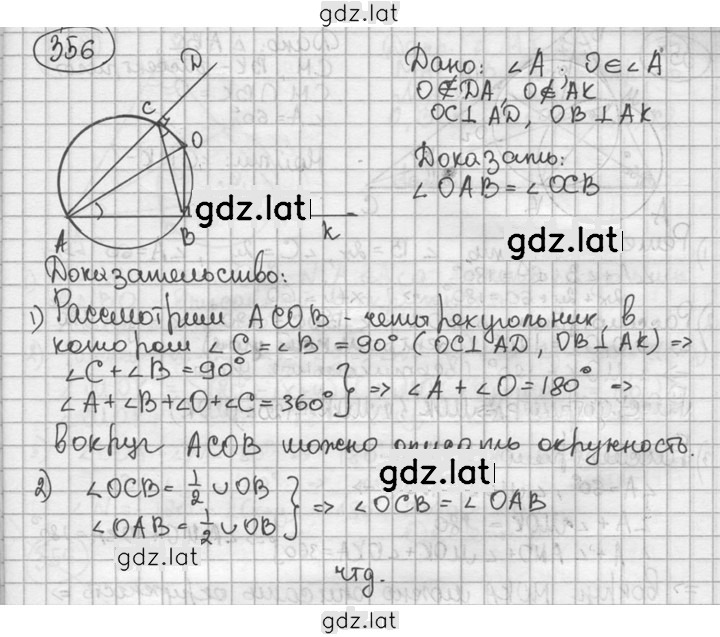 gdz.lat
356
Дано: ∠A; O∈∠A
O∉DA, O∉AK
OC⊥AD, OB⊥AK
Доказать:
∠OAB=∠OCB
D
C
O
A
B
K
gdz.lat
gdz.lat
Доказательство:
1) Рассмотрим ACOB - четырехугольник, в
котором ∠C=∠B=90° (OC⊥AD, OB⊥AK) =>
∠C+∠B=90°
∠A+∠B+∠O+∠C=360° } => ∠A+∠O=180° =>
вокруг ACOB можно описать окружность.
gdz.lat
2) ∠OCB=1/2 ∪OB
∠OAB=1/2 ∪OB } => ∠OCB=∠OAB
gdz.lat
чтд.
gdz.lat